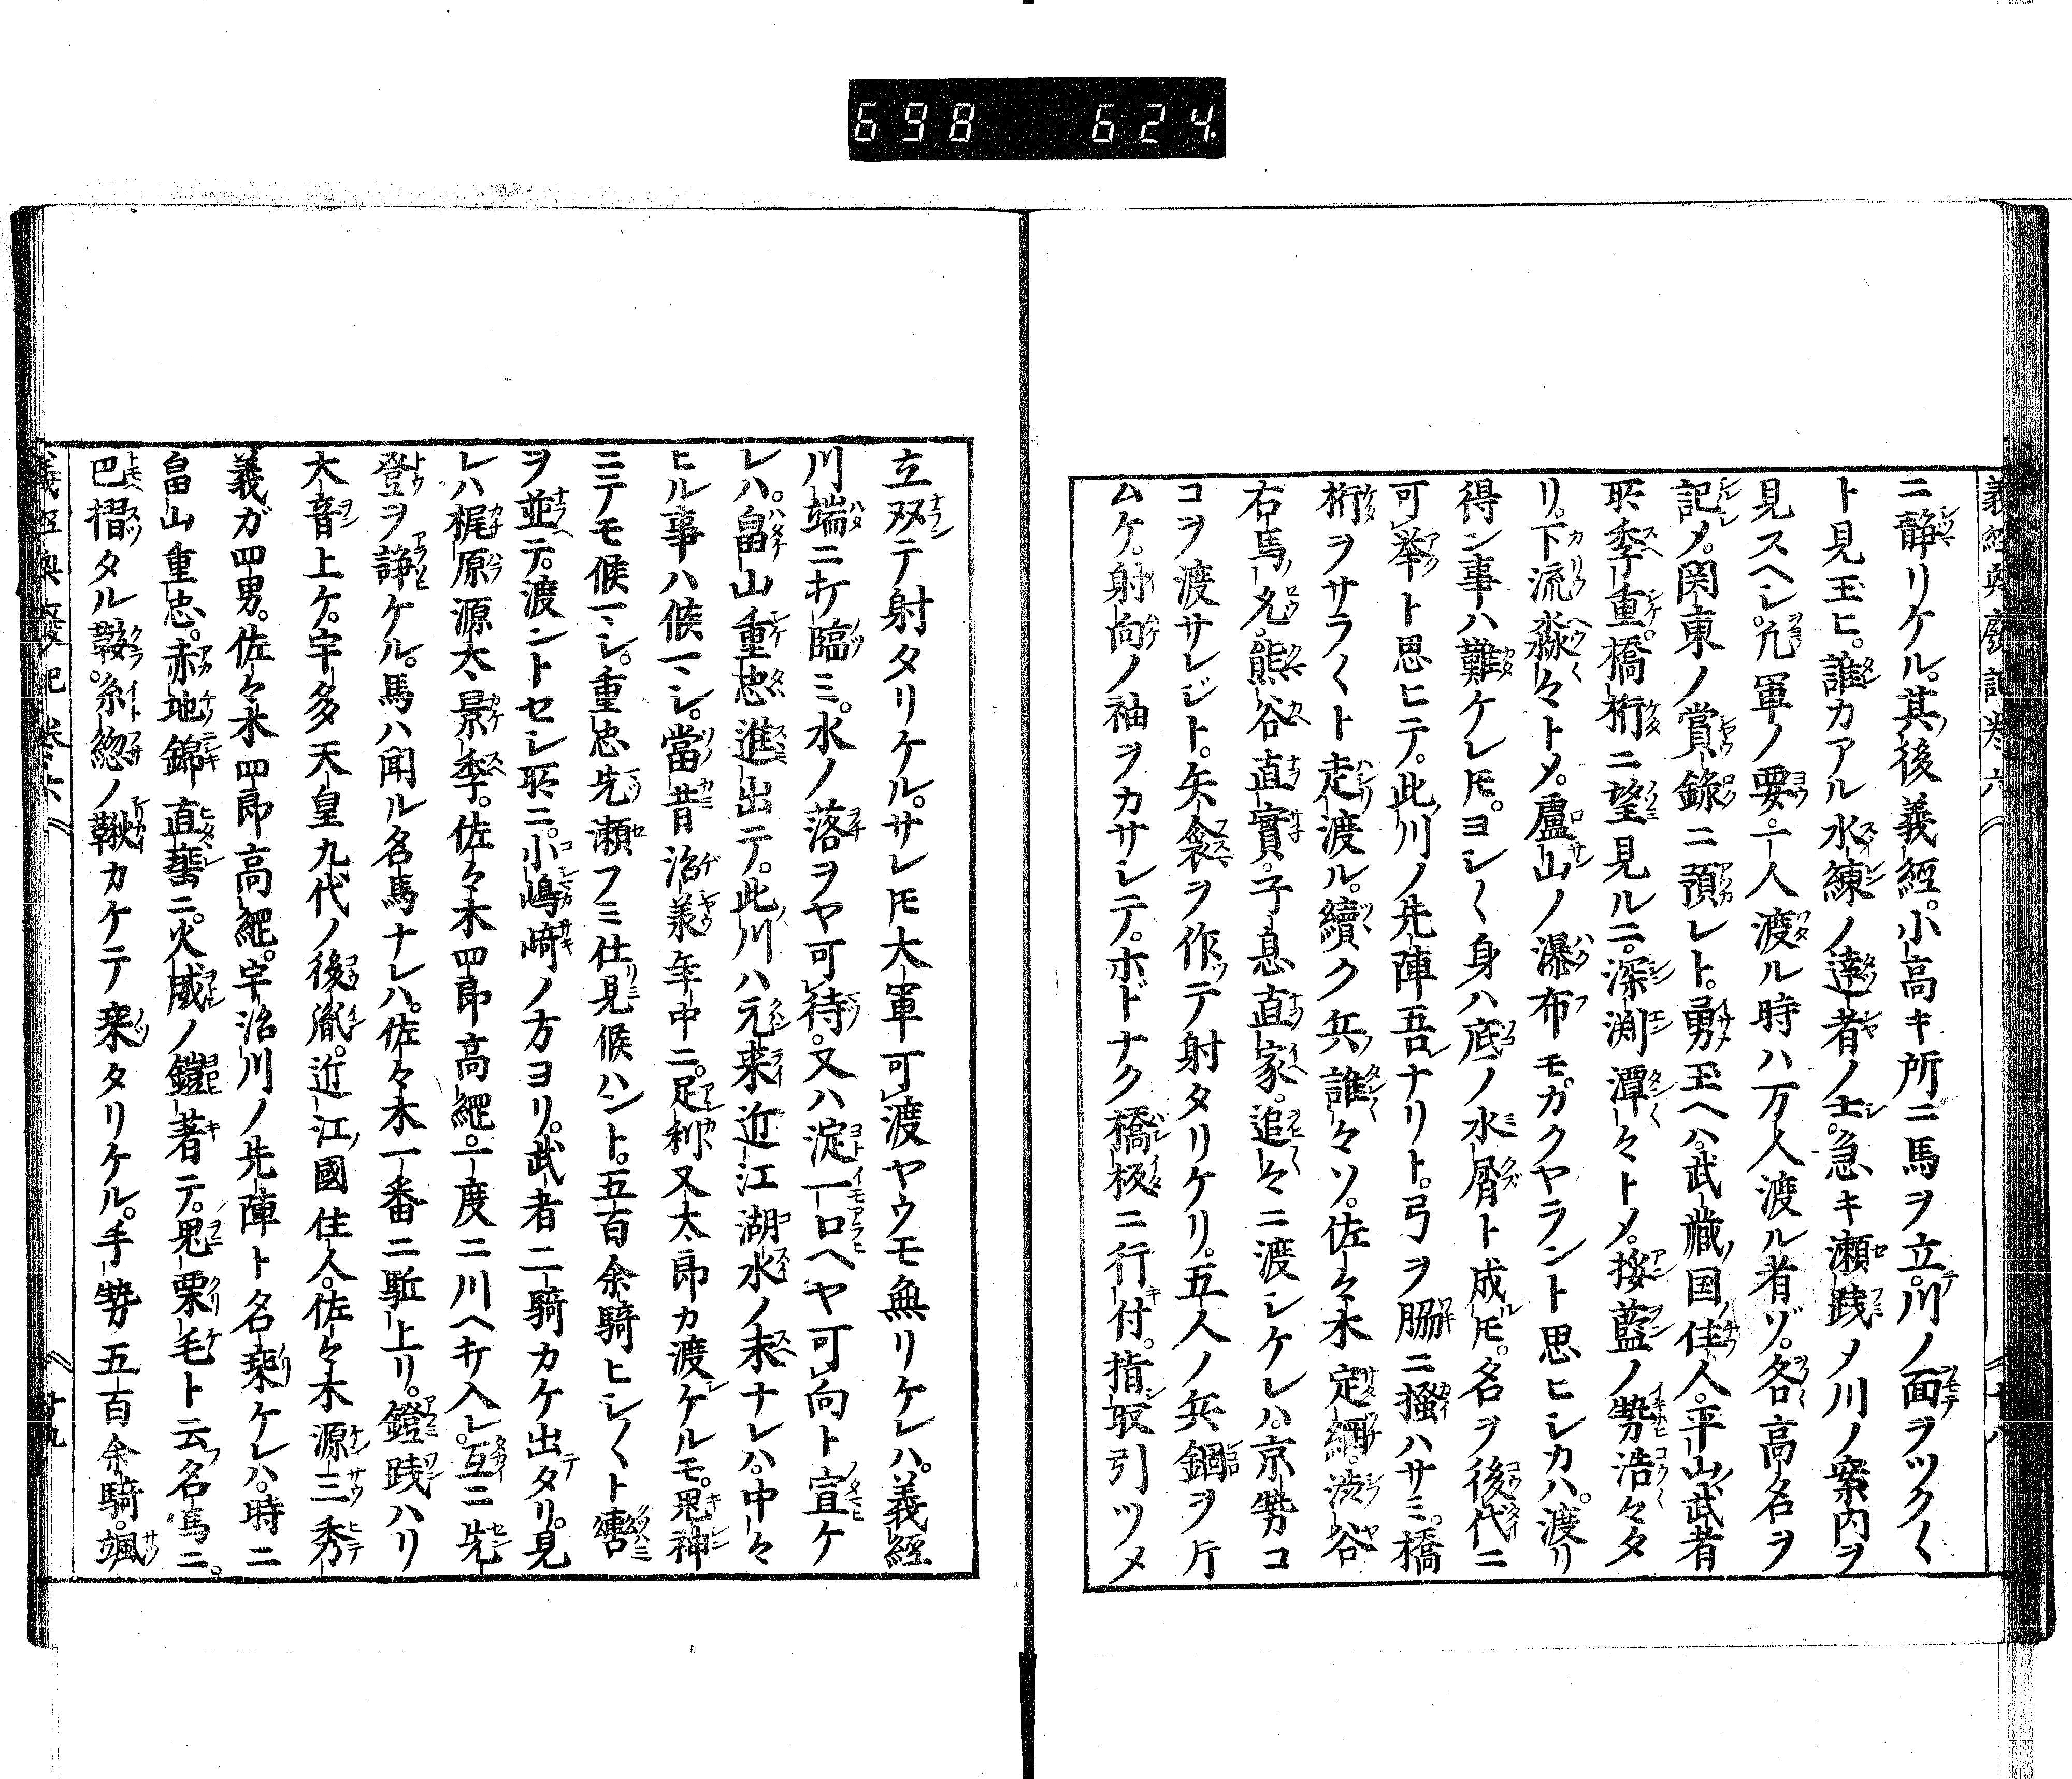 698 624
義經興廢記卷六 十八
ニ静リケル。其後義經。小高キ所ニ馬ヲ立。川ノ面ヲツク〱
ト見玉ヒ。誰カアル水練ノ達者ノ士。急キ瀬践メ川ノ案内ヲ
見スヘシ。凢軍ノ要。一人渡ル時ハ万人渡ル者ゾ。各高名ヲ
記メ。関東ノ賞録ニ預レト。勇玉ヘハ。武藏国住人。平山武者
所季重。橋桁ニ望見ルニ。深渕潭々トメ。挼藍ノ勢浩々タ
リ。下流淼々トメ。廬山ノ瀑布モ。カクヤラント思ヒシカハ。渡リ
得ン事ハ難ケレ𪜈。ヨシ〱身ハ底ノ水屑ト成𪜈。名ヲ後代ニ
可舉ト思ヒテ。此川ノ先陣吾ナリト。弓ヲ脇ニ搔ハサミ。橋
桁ヲサラ〱ト走渡ル。續ク兵誰々ソ。佐々木定綱。渋谷
右馬允。熊谷直實。子息直家。追々ニ渡シケレハ。京勢コ
コヲ渡サレジト。矢衾ヲ作テ射タリケリ。五人ノ兵錮ヲ斤
ムケ。射向ノ袖ヲカサシテ。ホドナク橋板ニ行付。指取引ツメ
立双テ射タリケル。サレ𪜈大軍可渡ヤウモ無リケレハ。義經
川端ニ打臨ミ。水ノ落ヲヤ可待。又ハ淀一口ヘヤ可向ト宣ケ
レハ。畠山重忠進出テ。此川ハ元来近江湖水ノ末ナレハ。中々
ヒル事ハ候マシ。當昔治義年中ニ。足利又太郎カ渡ケルモ。鬼神
ニテモ候マシ。重忠先瀬フミ仕見候ハント。五百余騎ヒシ〱ト轡
ヲ並テ。渡ントセシ所ニ。小嶋崎ノ方ヨリ。武者二騎カケ出タリ。見
レハ梶原源太景季。佐々木四郎高綱。一度ニ川ヘ打入レ。互ニ先
登ヲ諍ケル。馬ハ聞ル名馬ナレハ。佐々木一番ニ駈上リ。鐙践ハリ
大音上ケ。宇多天皇九代ノ後胤。近江國住人。佐々木源三秀
義ガ四男。佐々木四郎高綱。宇治川ノ先陣ト名乗ケレハ。時ニ
畠山重忠。赤地錦直垂ニ。火威ノ鎧著テ。鬼栗毛ト云名馬ニ。
巴摺タル鞍。糸総ノ鞦カケテ乗タリケル。手勢五百余騎。颯
義經興廢記卷六 廿九